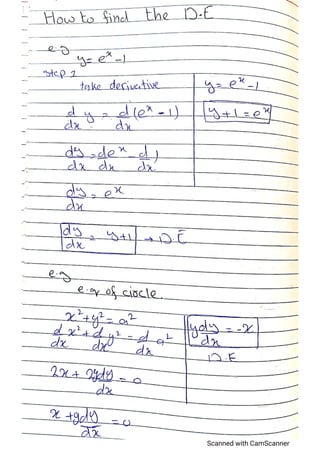 How to find the D.E
e.g
y = e^x - 1
Step 1
take derivative
d/dx y = d/dx (e^x - 1)
dy/dx = de^x/dx - d/dx 1
dy/dx = e^x
dy/dx = y+1 → D.E
y = e^x - 1
y + 1 = e^x
e.g
e.q of circle.
x² + y² = a²
d/dx x² + d/dx y² = d/dx a²
2x + 2ydy/dx = 0
x + ydy/dx = 0
ydy/dx = -x
D.E
Scanned with CamScanner